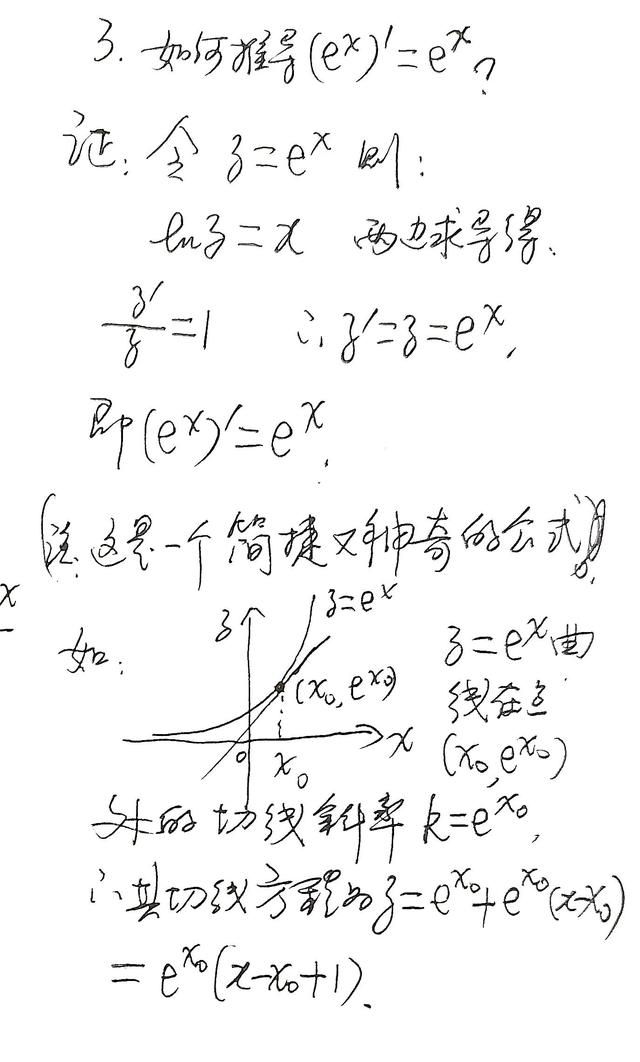 3. 如何推导(eˣ)′=eˣ?
证: 令 y=eˣ 则:
ln y=x 两边求导得.
y′/y=1 ∴ y′=y=eˣ,
即(eˣ)′=eˣ.
(注:这是一个简捷又神奇的公式).
x
如:
y
y=eˣ
(x₀,e^x₀)
0
x₀
x
y=eˣ曲
线在点
(x₀,e^x₀)
处的切线斜率 k=e^x₀,
∴其切线方程为y=e^x₀+e^x₀(x-x₀)
=e^x₀(x-x₀+1).